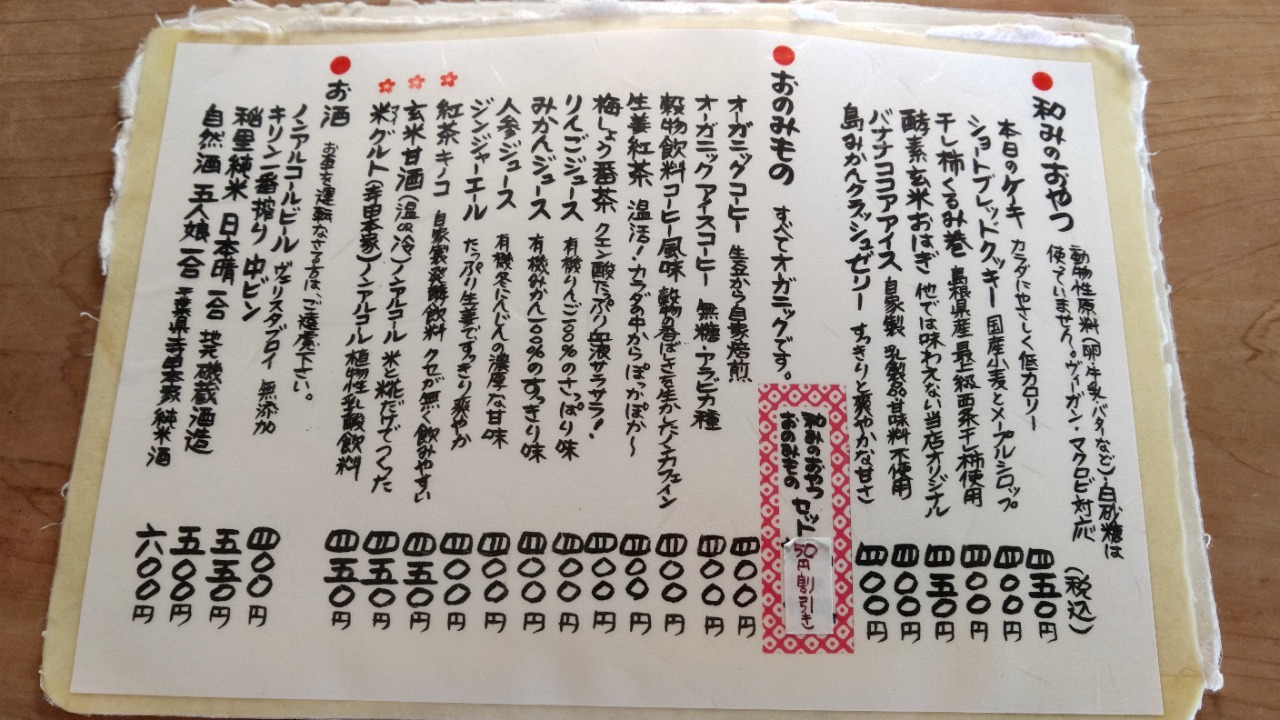 和みのおやつ
動物性原料(卵・牛乳・バタなど)・白砂糖は
使っていません。ヴィーガン・マクロビ対応
(税込)
本日のケーキ カラダにやさしく低カロリー 四五〇円
ショートブレッドクッキー 国産小麦とメープルシロップ 四〇〇円
干し柿くるみ巻 島根県産最上級西条干し柿使用 四〇〇円
酵素玄米おはぎ 他では味わえない当店オリジナル 四五〇円
バナナココアアイス 自家製 乳製品甘味料不使用 四〇〇円
島みかんクラッシュゼリー すっきりと爽やかな甘さ 四〇〇円
おのみもの すべてオーガニックです。
和みのおやつ
おのみもの
セット
50円割引き
オーガニックコーヒー 生豆から自家焙煎 四〇〇円
オーガニックアイスコーヒー 無糖・アラビカ種 四〇〇円
穀物飲料コーヒー風味 穀物の香ばしさを生かしたノンカフェイン 四〇〇円
生姜紅茶 温活!カラダの中からぽっかぽか〜 四〇〇円
梅しょう番茶 クエン酸たっぷり血液サラサラ! 四〇〇円
りんごジュース 有機りんご100%のさっぱり味 四〇〇円
みかんジュース 有機みかん100%のすっきり味 四〇〇円
人参ジュース 有機冬にんじんの濃厚な甘味 四〇〇円
ジンジャーエール たっぷり生姜ですっきり爽やか 四〇〇円
紅茶キノコ 自家製発酵飲料 クセが無く飲みやすい 四〇〇円
玄米甘酒(温or冷)ノンアルコール 米と糀だけでつくった 四五〇円
米グルト(寺田本家)ノンアルコール 植物性乳酸飲料 四五〇円
お酒 お車を運転なさる方は、ご遠慮下さい。
ノンアルコールビール ヴェリタスブロイ 無添加 四〇〇円
キリン一番搾り 中ビン 五五〇円
稲里純米 日本晴 一合 地元磯蔵酒造 五〇〇円
自然酒 五人娘 一合 千葉県寺田本家 純米酒 六〇〇円